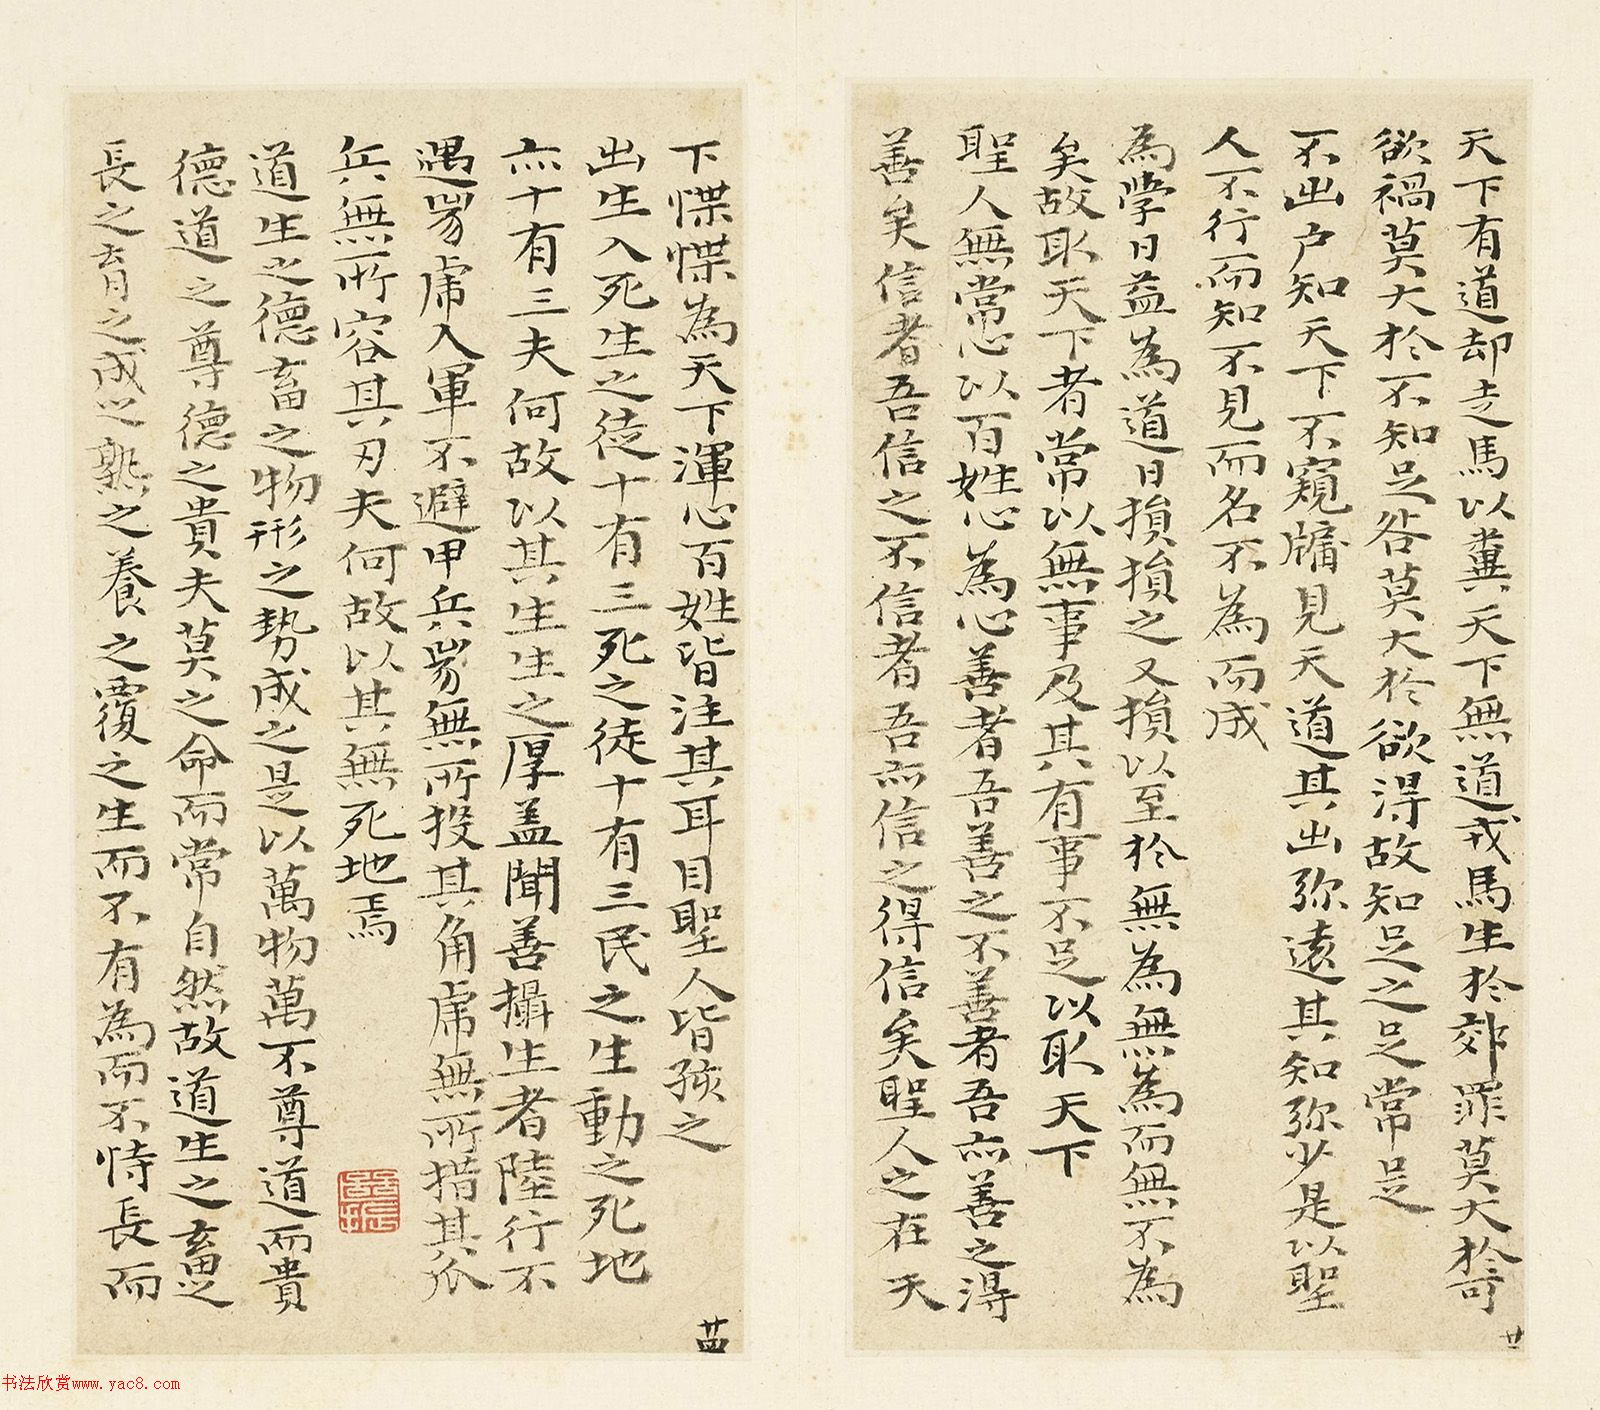 天下有道却走馬以糞天下無道戎馬生於郊罪莫大於可
欲禍莫大於不知足咎莫大於欲得故知足之足常足
不出户知天下不窺牖見天道其出弥遠其知弥少是以聖
人不行而知不見而名不為而成
為學日益為道日損損之又損以至於無為無為而無不為
矣故取天下者常以無事及其有事不足以取天下
聖人無常心以百姓心為心善者吾善之不善者吾亦善之得
善矣信者吾信之不信者吾亦信之得信矣聖人之在天
廿
下惵惵為天下渾心百姓皆注其耳目聖人皆孩之
出生入死生之徒十有三死之徒十有三民之生動之死地
亦十有三夫何故以其生生之厚盖聞善攝生者陸行不
遇兕虎入軍不避甲兵兕無所投其角虎無所措其爪
兵無所容其刃夫何故以其無死地焉
道生之德畜之物形之勢成之是以萬物萬不尊道而貴
德道之尊德之貴夫莫之命而常自然故道生之畜之
長之育之成之熟之養之覆之生而不有為而不恃長而
廿四
书法欣赏www.yac8.com